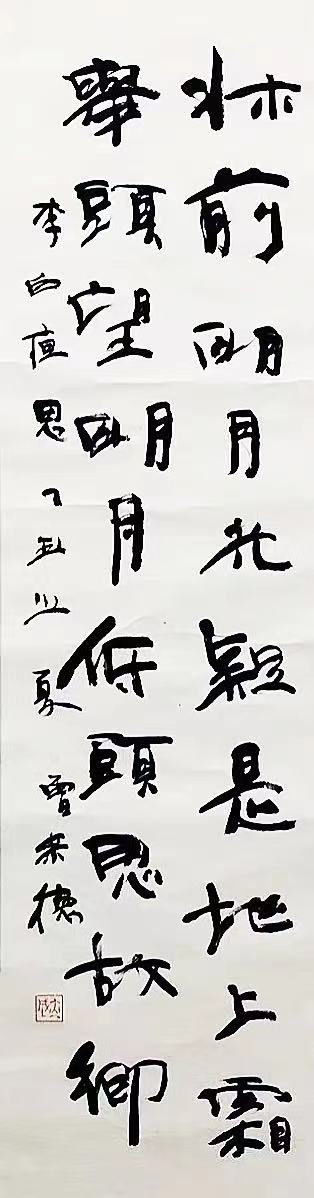 牀前明月光疑是地上霜
舉頭望明月低頭思故鄉
李白夜思乙丑之夏曾来德